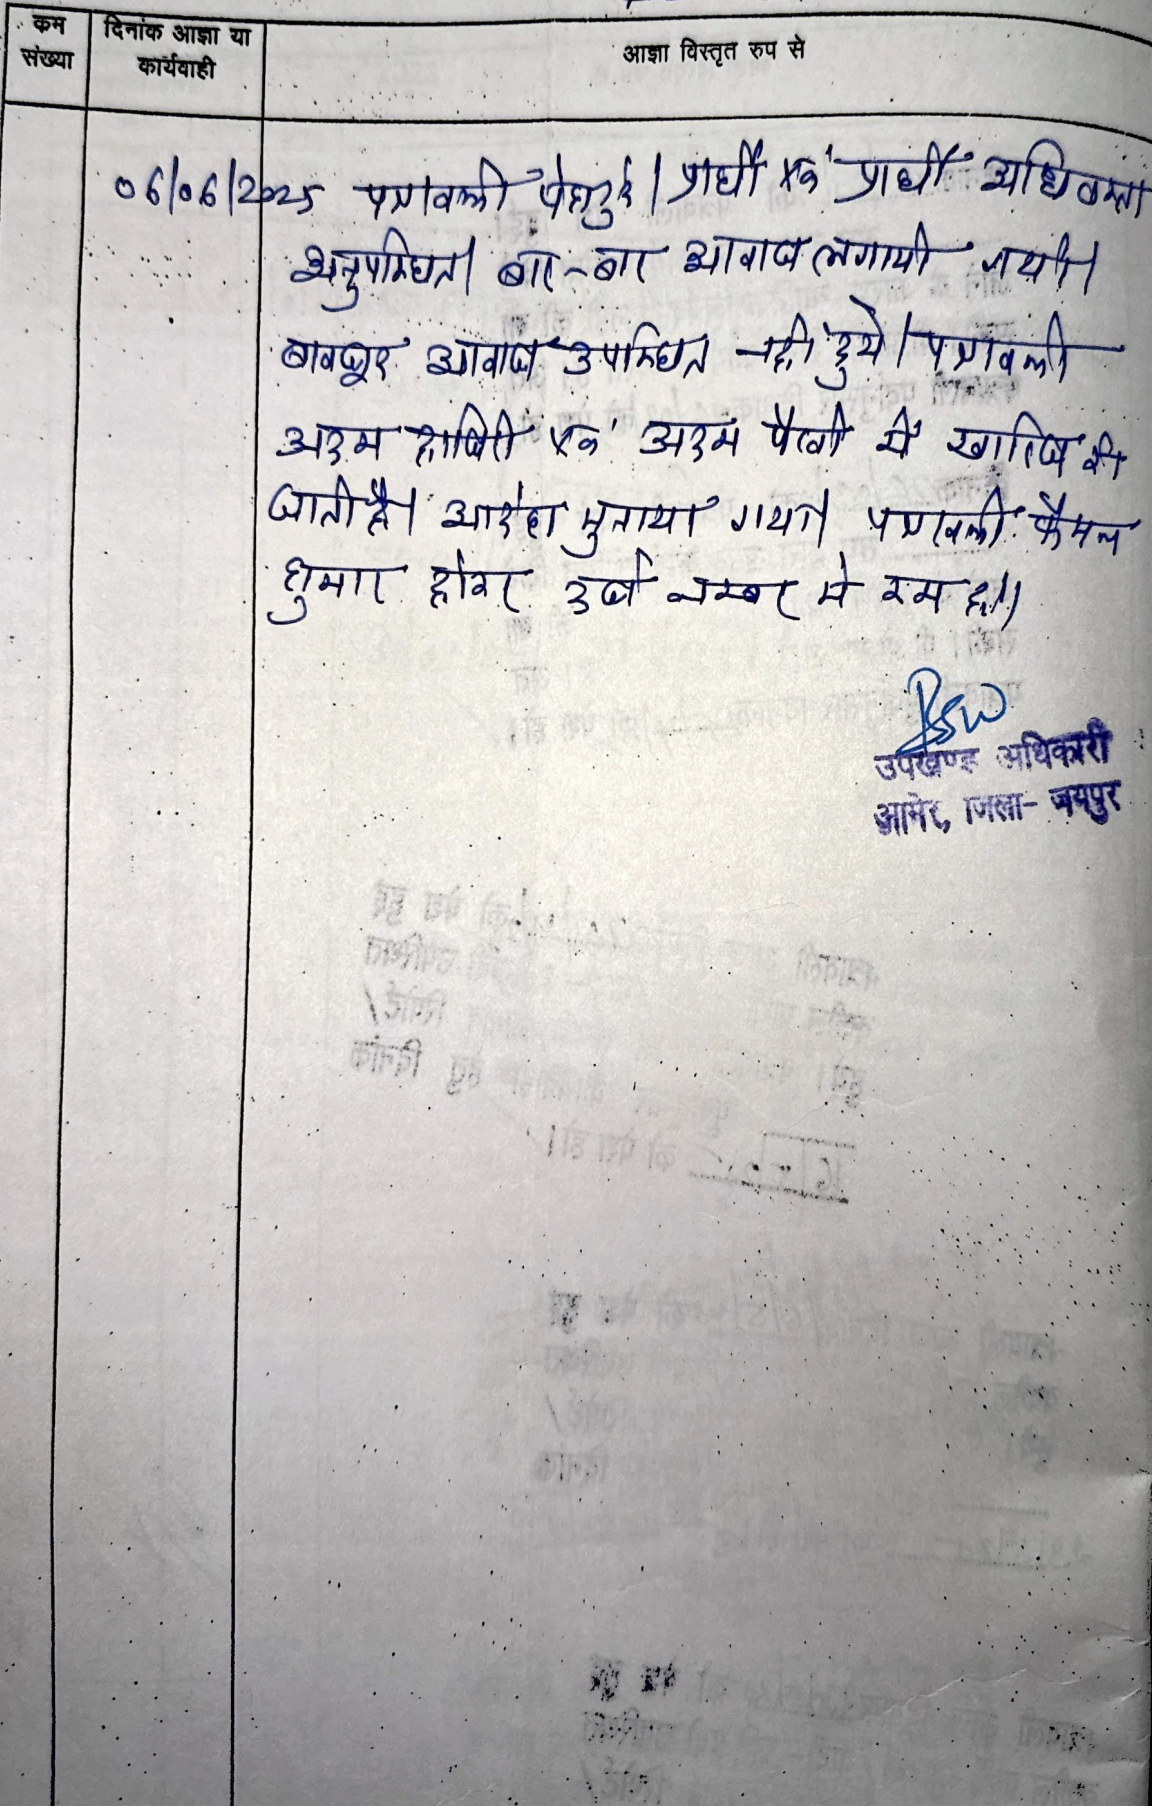 कम संख्या
दिनांक आज्ञा या कार्यवाही
आज्ञा विस्तृत रुप से
06/06/2025 पत्रावली पेश हुई। प्रार्थी एवं प्रार्थी अधिवक्ता
अनुपस्थित। बार-बार आवाज लगायी गयी।
बावजूद आवाज उपस्थित नहीं हुये। पत्रावली
अदम हाजिरी एवं अदम पैरवी में खारिज की
जाती है। आदेश सुनाया गया। पत्रावली फैसल
शुमार होकर दर्ज नम्बर से कम हो।
उपखण्ड अधिकारी
आमेर, जिला- जयपुर